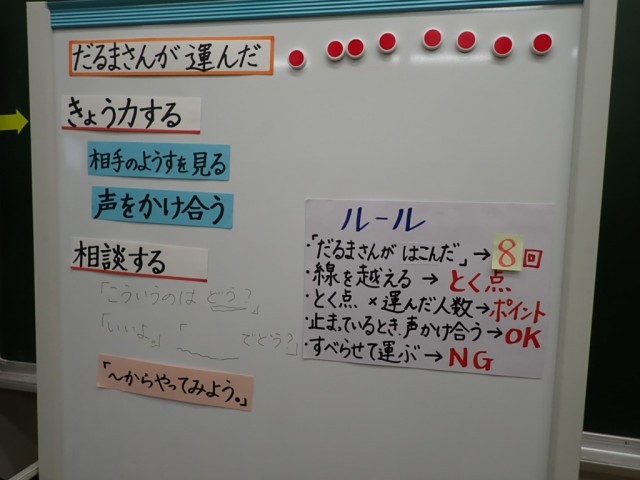 だるまさんが運んだ
きょう力する
相手のようすを見る
声をかけ合う
相談する
「こういうのは どう?」
「いいよ。」「 でどう?」
「～からやってみよう。」
ルール
・「だるまさんが はこんだ」→8回
・線を越える→とく点
・とく点×運んだ人数→ポイント
・止まっているとき、声かけ合う→OK
・すべらせて運ぶ→NG